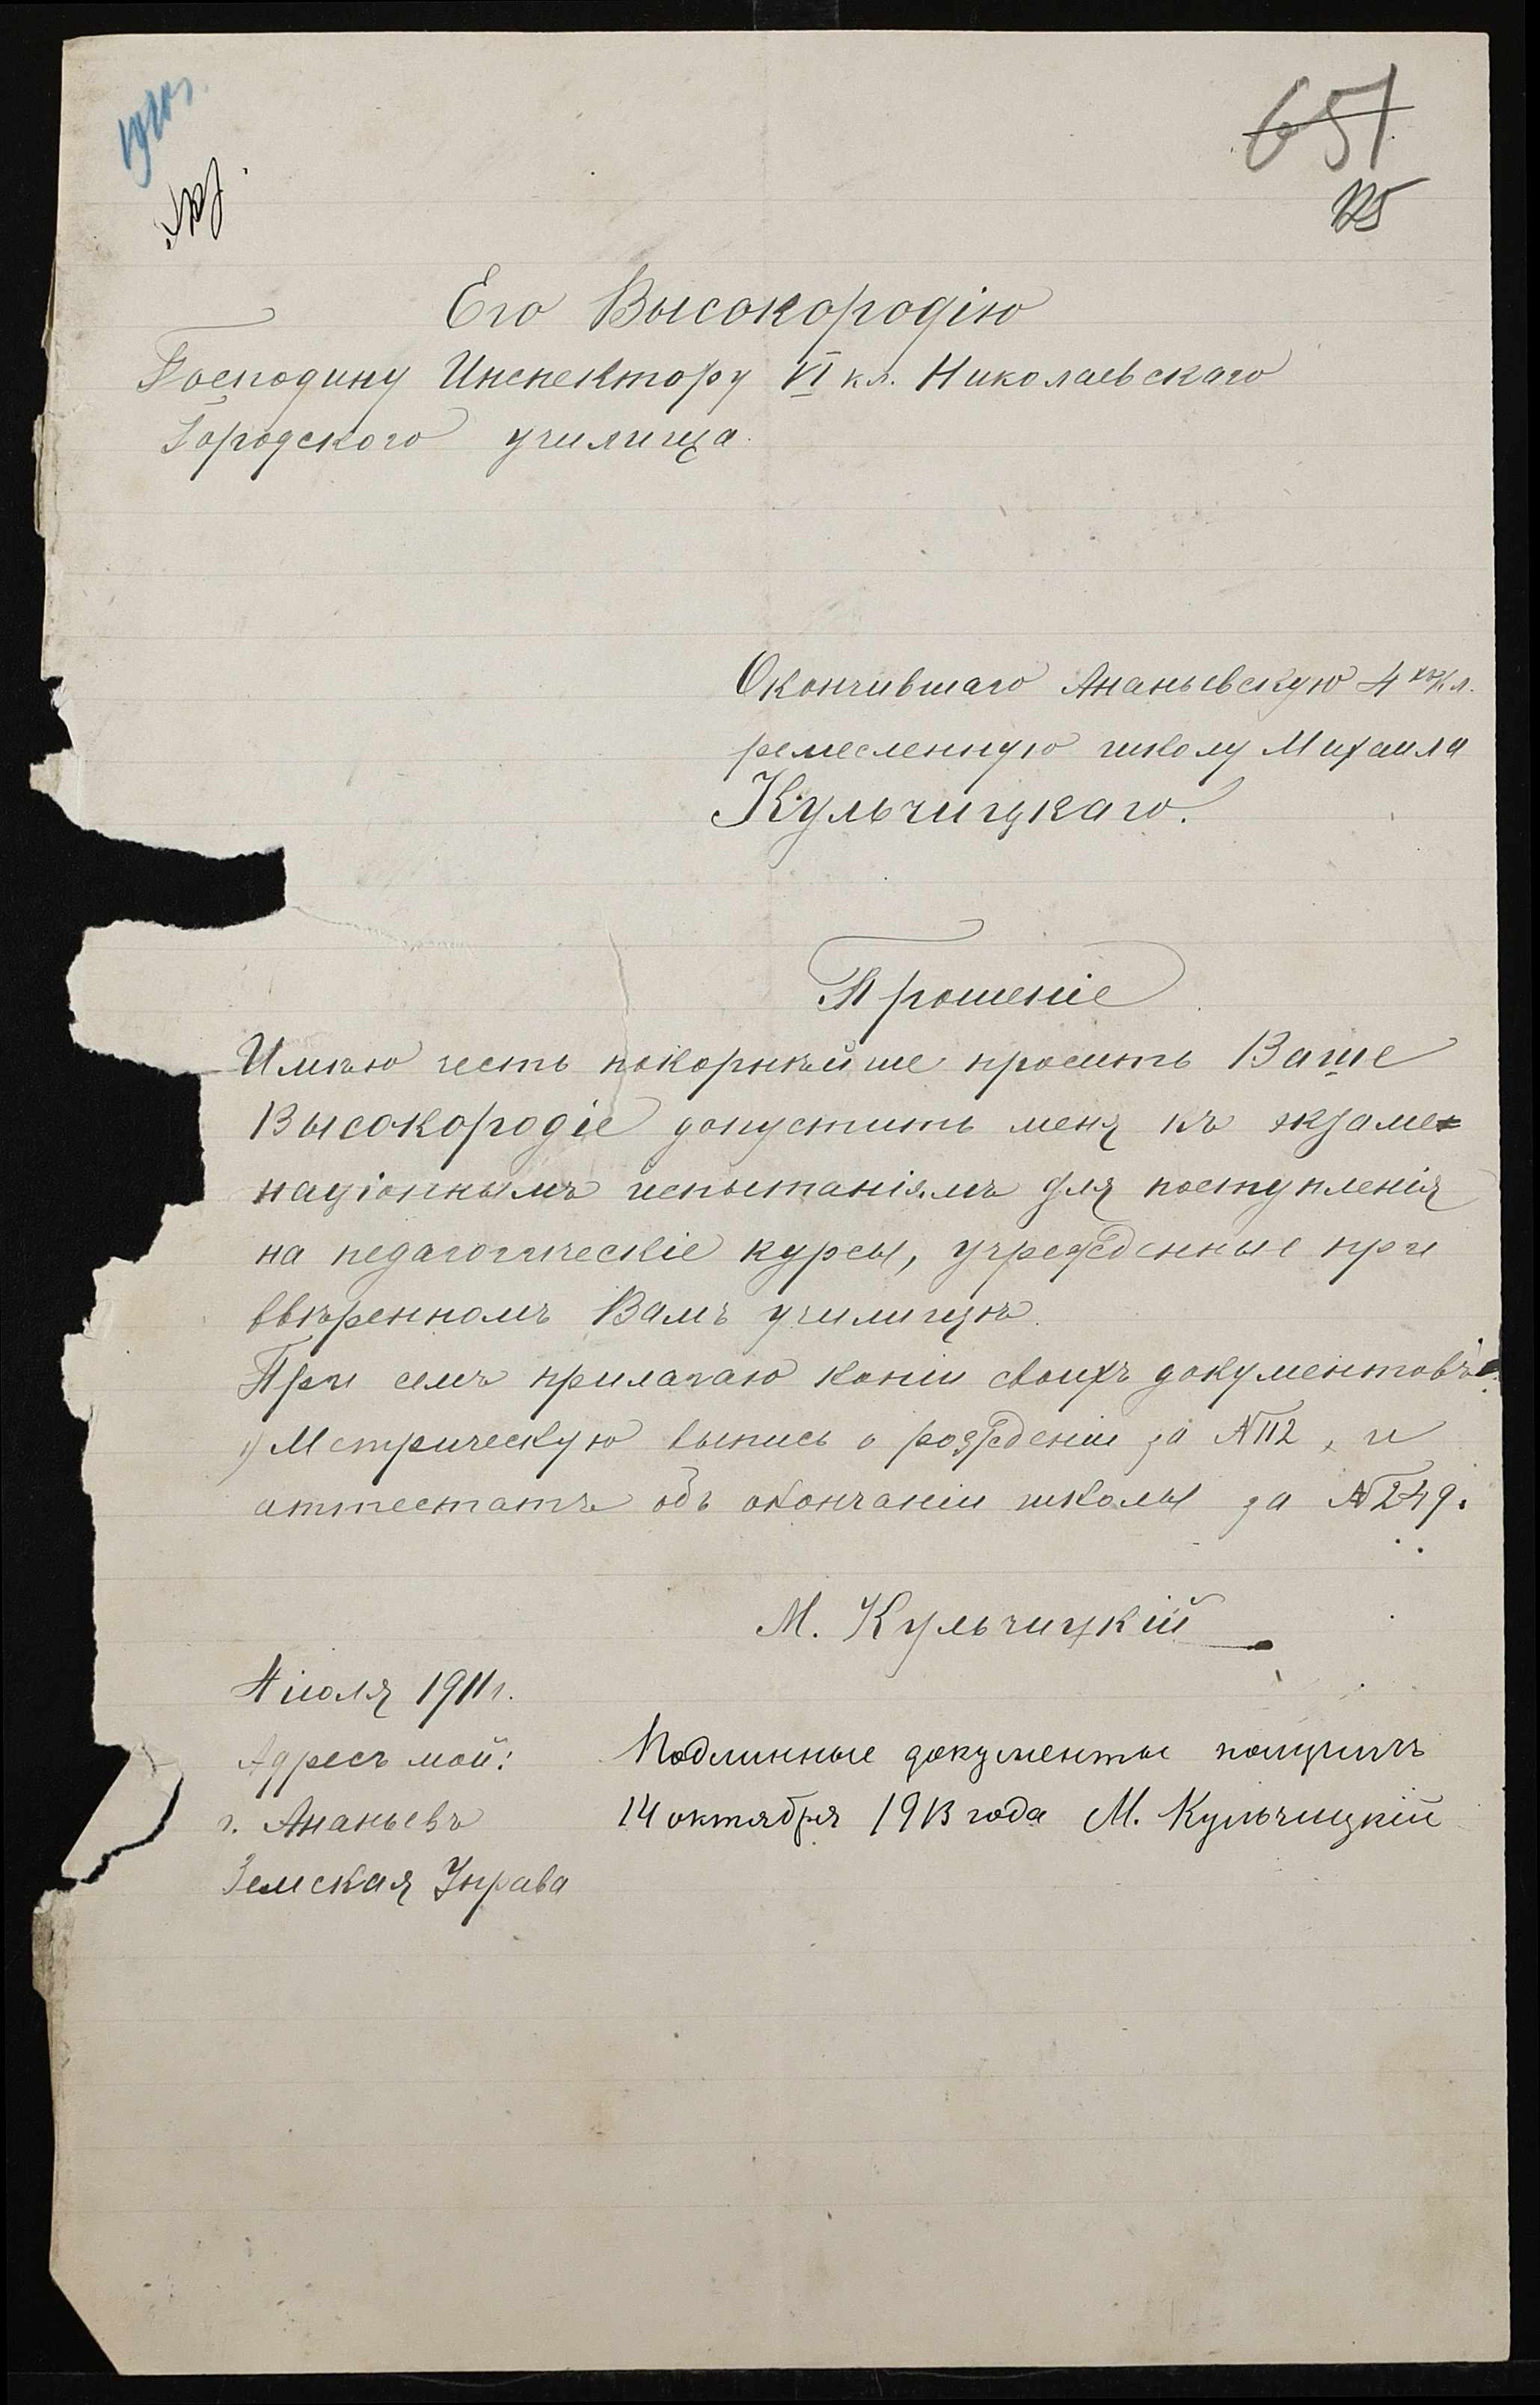 651
125
Его Высокородію
Господину Инспектору VI кл. Николаевскаго
Городского училища.
Окончившаго Ананьевскую 4 хъ кл.
ремесленную школу Михаила
Кульчицкаго.
Прошеніе
Имѣю честь покорнѣйше просить Ваше
Высокородіе допустить меня къ экзаме=
націоннымъ испытаніямъ для поступленія
на педагогическіе курсы, учрежденные при
ввѣренномъ Вамъ училищѣ.
При семъ прилагаю копіи своихъ документовъ:
1) Метрическую выпись о рожденіи за №112, и
аттестатъ объ окончаніи школы за №249.
М. Кульчицкій
4 іюля 1911 г.
Адресъ мой:
г. Ананьевъ
Земская Управа
Подлинные документы получилъ
14 октября 1913 года М. Кульчицкій